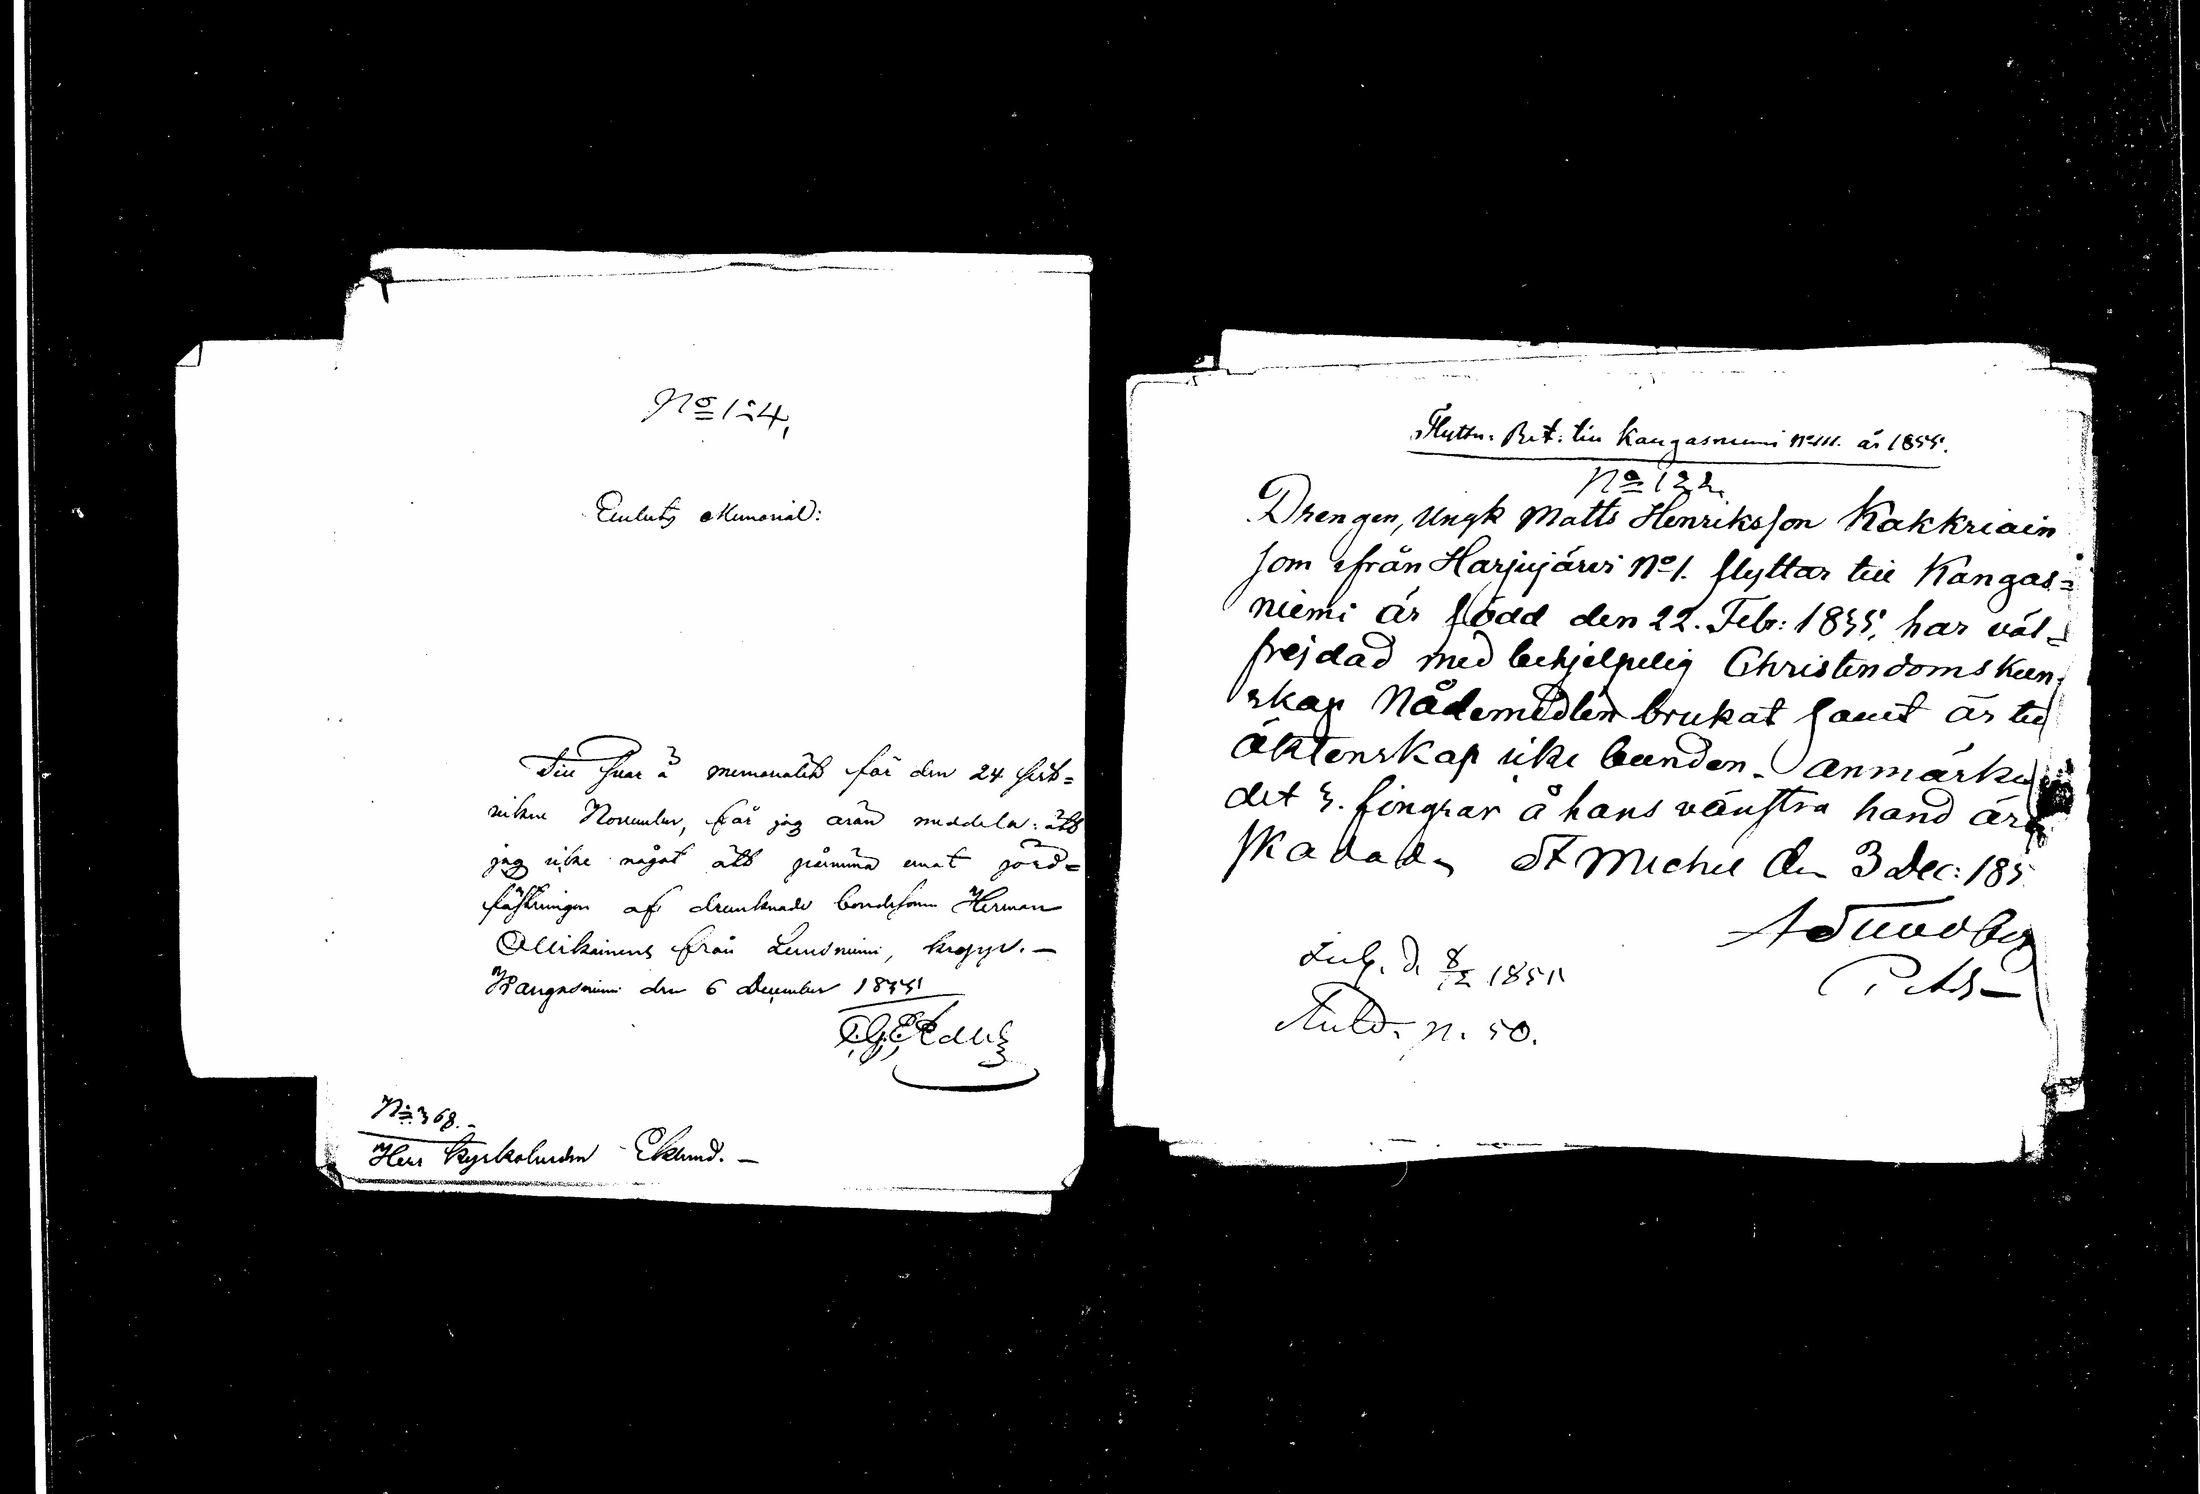 No 124,
Ödmjukt Memorial:
Till svar å memorialet för den 24 sist-
vikne November, får jag äran meddela: att
jag icke något att påminna emot jord-
fästningen af drunknade bondesonen Herman
Ollikainens från Lusniemi, kropp. —
Kangasniemi den 6 December 1855
No 368. —
Herr Kyrkoherden Eklund. —
Flyttn: Bet: till Kangasniemi No 111. år 1855.
No 122.
Drengen, Ungk Matts Henriksson Kakkriain
som ifrån Harjujärvi No 1. flyttar till Kangas=
niemi är född den 22. Febr: 1835, har väl-
frejdad med behjelpelig Christendoms kun-
skap Nådemedlen brukat samt är till
äktenskap icke bunden. anmärkes
det 3. fingrar å hans vänstra hand är
skadade St Michel den 3 Dec: 185
A Sundberg
Inl. d. 8/12 1855
n. 50.